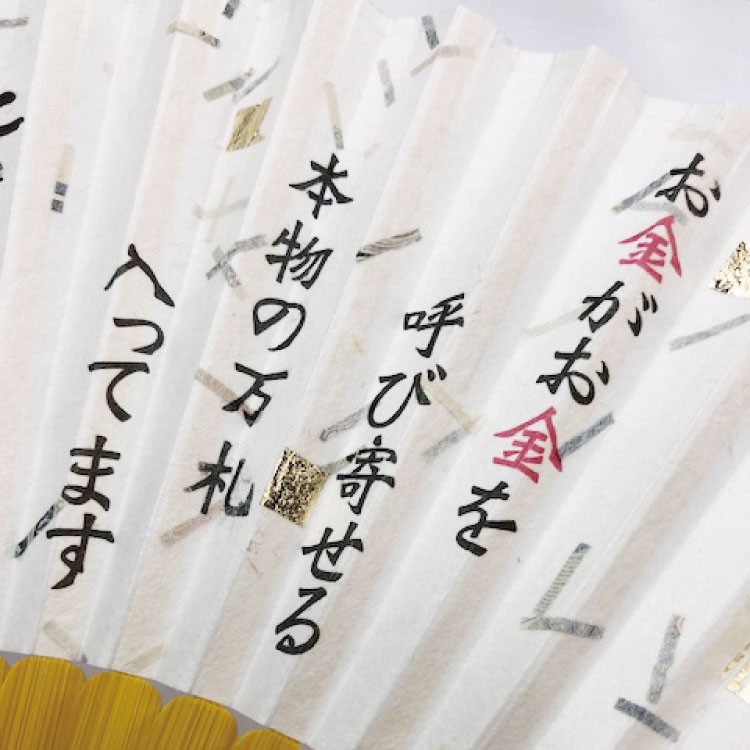 お金がお金を
呼び寄せる
本物の万札
入ってます